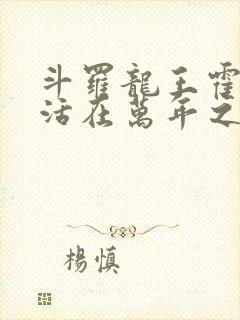 斗羅龍王霍
活在萬年之
楊慎